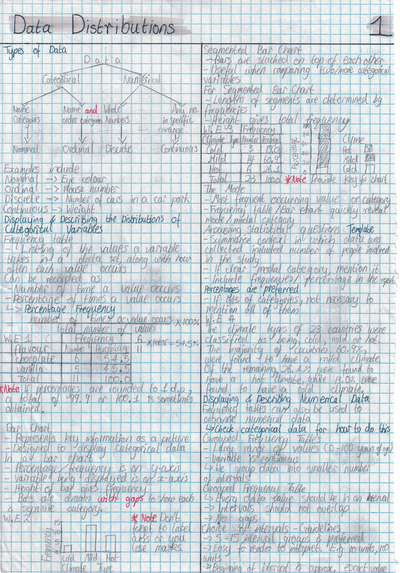 Data Distributions
1
Types of Data
Data
Categorical Numerical
Name Name and Whole Any no.
Categories order categories Numbers in specific
Nominal Ordinal Discrete Continuous
Examples include
Nominal → Eye colour
Ordinal → House number
Discrete → Number of cars in a car park
Continuous → Weight
Displaying & Describing the Distributions of
Categorical Variables
Frequency table
- Listing of the values a variable
takes in a data set, along with how
often each value occurs
Can be recorded as
- Number of times a value occurs
- Percentage of times a value occurs
↳ Percentage Frequency
number of times a value occurs x 100%
total number of values
W.E 1 Frequency
Flavour Number Percentage
chocolate 6 54.5
vanilla 5 45.5
Total 11 100.0
*Note if percentages are rounded to 1 d.p,
a total of 99.9 or 100.1 is sometimes
obtained.
Bar Chart
- Represents key information as a picture
- Designed to display categorical data
In a bar chart:
- Percentage/frequency is on y-axis
- Variable being displayed is on x-axis
- Height of bar gives frequency
- Bars are drawn with gaps to show each
is separate category.
W.E 2
*Note Don't
forget to label
axis or you
lose marks.
Frequency
Cold Mild Hot
Climate Type
Segmented Bar Chart
- Bars are stacked on top of each other
- Useful when comparing two/more categorical
variables
For Segmented Bar Chart
- Lengths of segments are determined by
frequencies
- Height gives total frequency
W.E 3 Frequency
Climate Type Number Percent
Cold 3 13.0
Mild 14 60.9
Hot 6 26.1
Total 23 100.0
Climate
Hot
Mild
Cold
*Note Provide key for chart
The Mode
- Most frequent occurring value or category
- Frequency table/bar chart quickly reveal
mode/modal category
Answering statistical questions Template
- Summarise context in which data was
collected included number of people involved
in the study
- If clear modal category, mention it
- Include frequency/percentage in the report
Percentages are preferred
- If lots of categories, not necessary to
mention all of them
W.E 4
The climate types of 23 countries were
classified as being cold, mild or hot.
The majority of countries 60.9%,
were found to have a mild climate.
Of the remaining, 26.1% were found to
have a hot climate, while 13.0% were
found to have a cold climate.
Displaying & Describing Numerical Data
Frequency tables can also be used to
organise numerical data
↳ Check categorical data for how to do this
Grouped Frequency Tables
- Large range of values (0-100 years of age)
- Variable is continuous
↳ We group data into smaller number
of intervals
Grouped Frequency Table
↳ Every data value should be in an interval
→ Intervals should not overlap
→ No gaps
Choice of intervals - Guidelines
→ 5-15 interval groups is preferred
→ Easy to read & interpret. E.g. 10 units, 100
units
→ Beginning of interval is approx. exact value